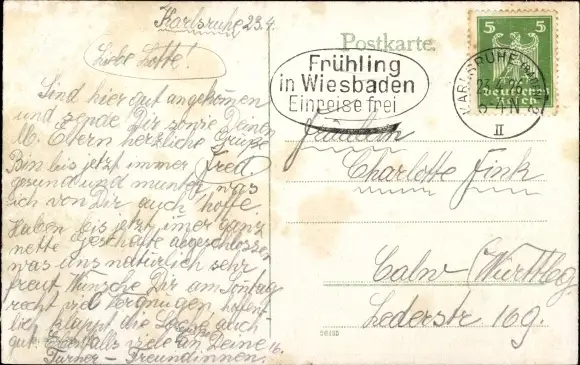 Karlsruhe 23.4.
Liebe Lotte!
Sind hier gut angekommen
und sende Dir sowie Deinen
l. Eltern herzliche Grüße
Bin bis jetzt immer
gesund und munter, was
ich von Dir auch hoffe.
Haben bis jetzt imer ganz
nette Geschäfte abgeschlossen
was uns natürlich sehr
freut Wünsche Dir am Sonntag
recht viel Vergnügen hoffent-
lich klappt die auch
gut. viele an Deine
Turner-Freundinnen.
Fred
Postkarte.
Frühling
in Wiesbaden
Einreise frei
5 5
Deutsches
Reich
KARLSRUHE
II
Fräulein
Charlotte Fink
Calw (Württbg.
Lederstr 169.